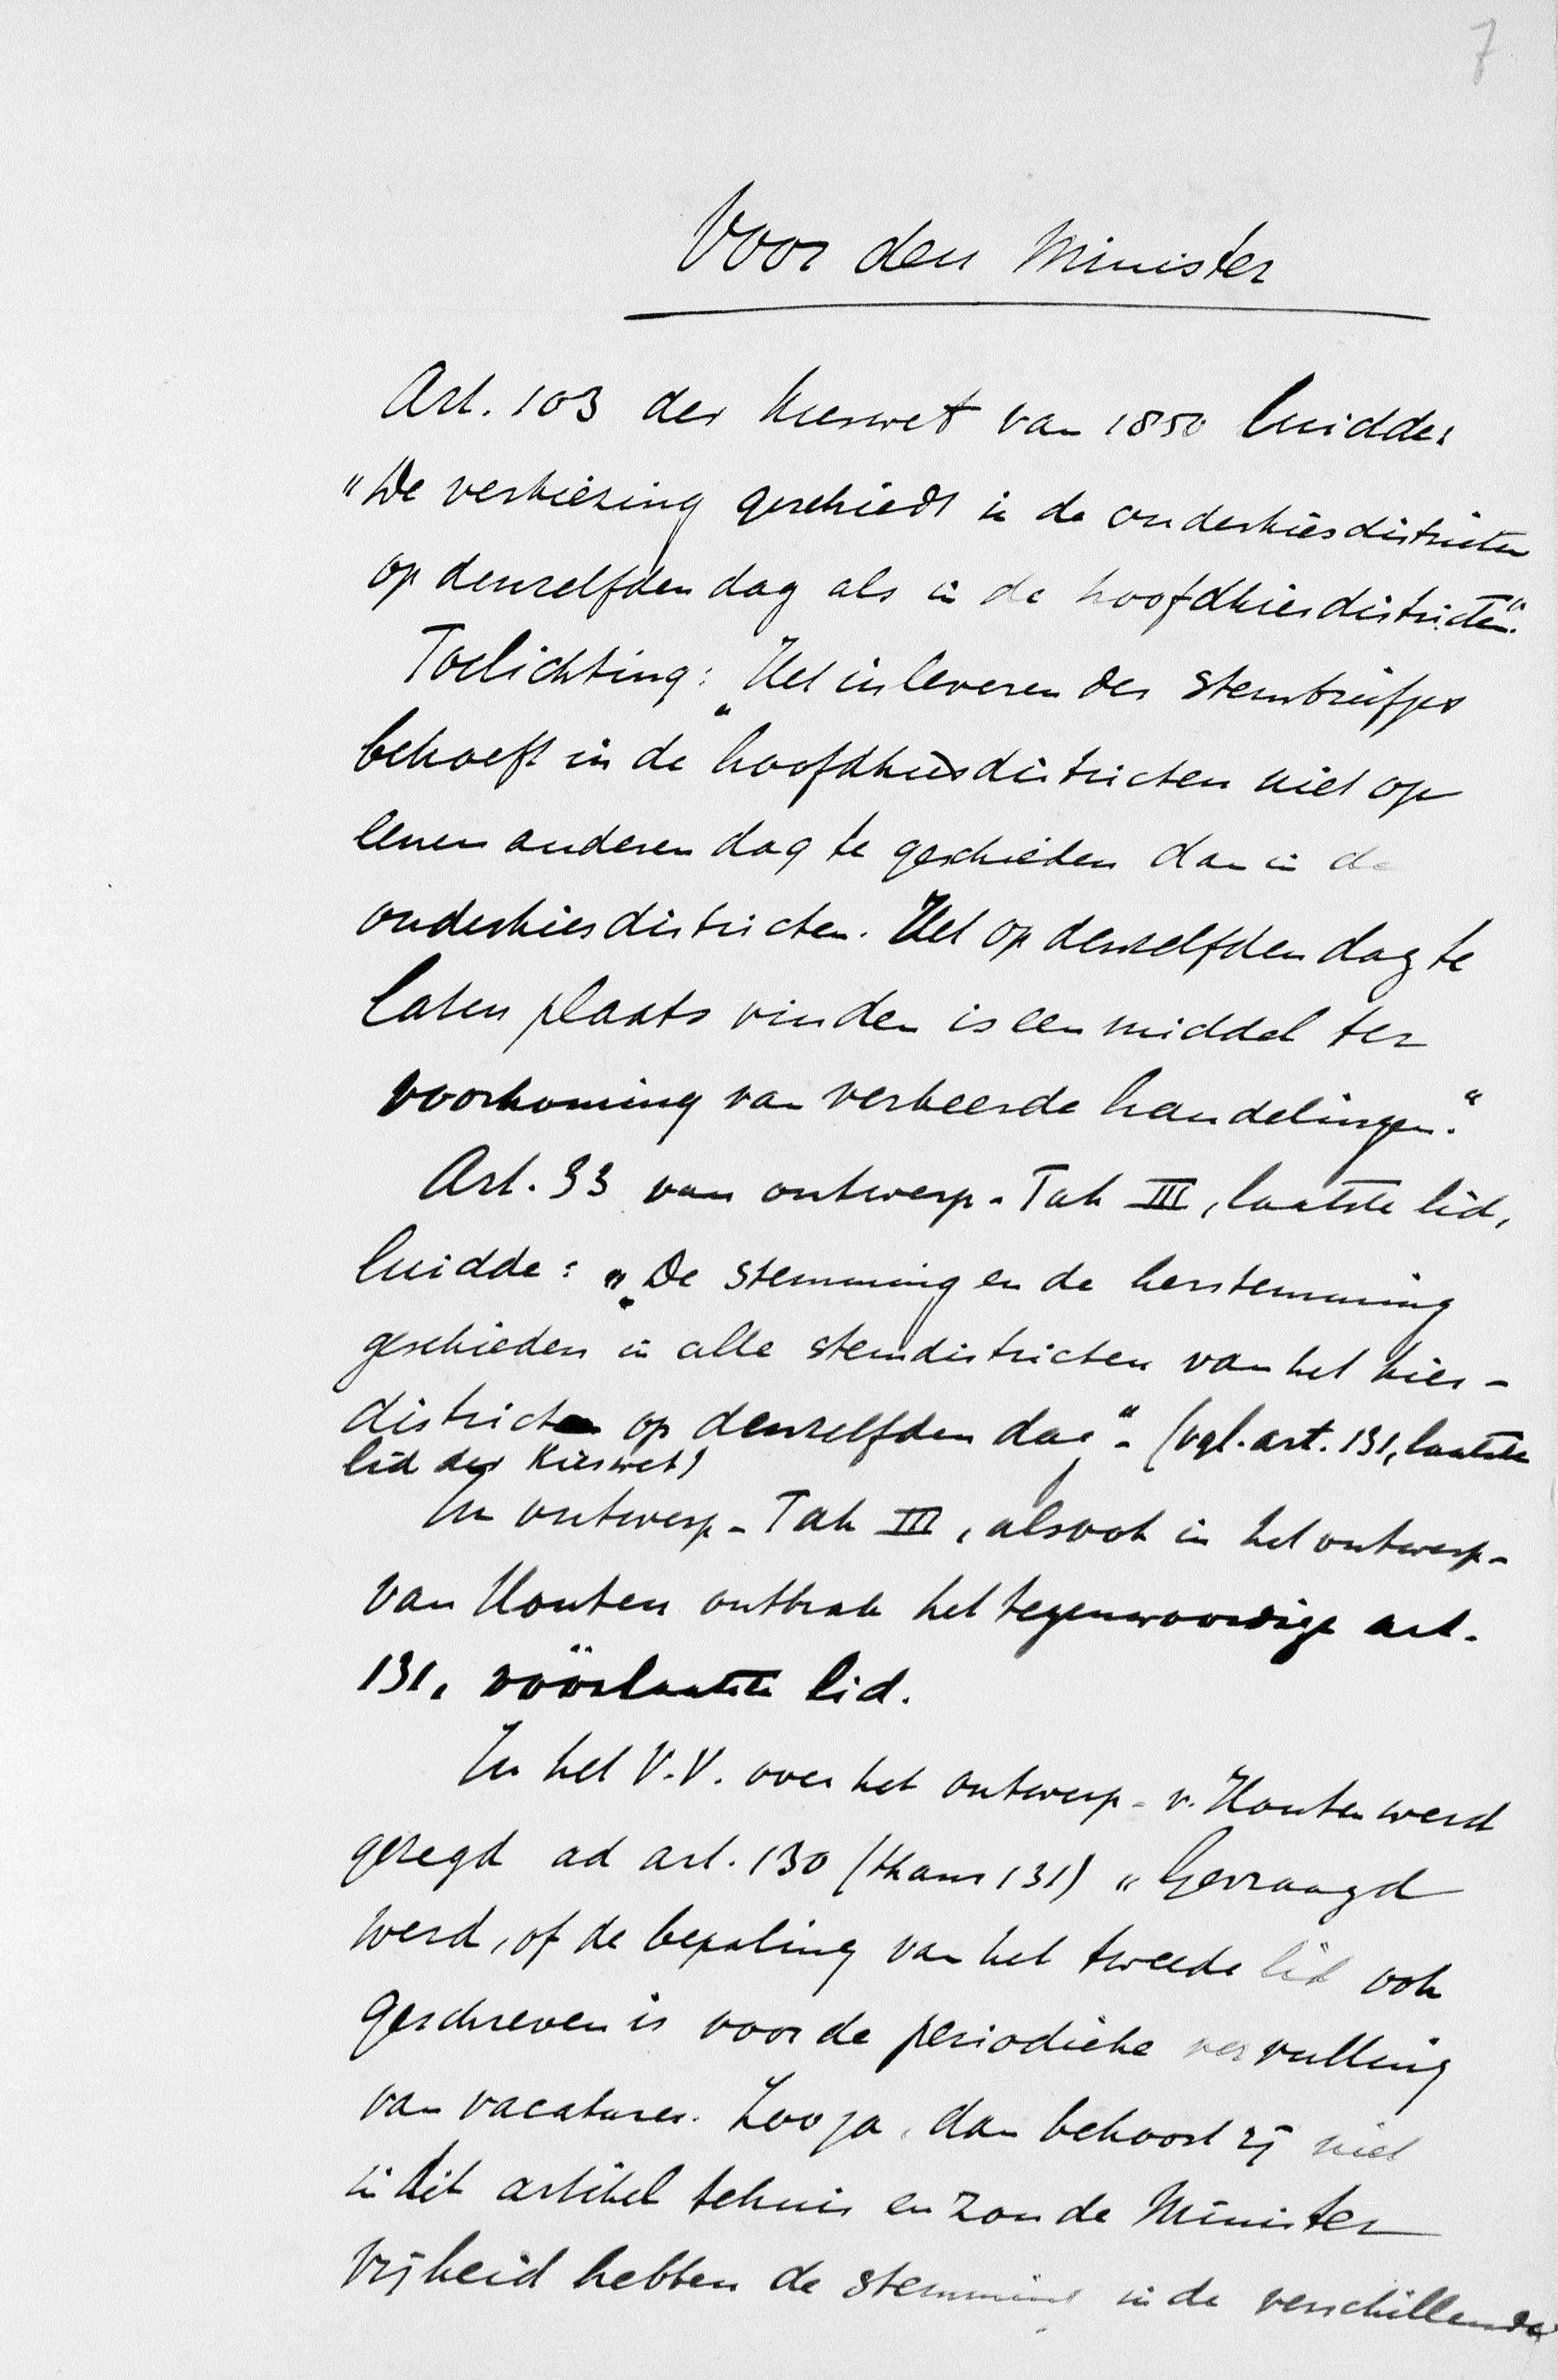 7
Voor den Minister
Art. 103 der Kieswet van 1850 luidde:
"De verkiezing geschiedt in de onderkiesdistricten
op denzelfden dag als in de hoofdkiesdistricten".
Toelichting: "Het inleveren der stembriefjes
behoeft in de hoofdkiesdistricten niet op
eenen anderen dag te geschieden dan in de
onderkiesdistricten. Het op denzelfden dag te
laten plaats vinden is een middel ter
voorkoming van verkeerde handelingen."
Art. 33 van ontwerp-Tak III, laatste lid,
luidde: „De stemming en de herstemming
geschieden in alle stemdistricten van het kies-
district op denzelfden dag". (vgl. art. 131, laatste
lid der Kieswet)
In ontwerp-Tak III, alsook in het ontwerp-
van Houten ontbrak het tegenwoordige art.
131, vóórlaatste lid.
In het V.V. over het ontwerp-v. Houten werd
gezegd ad art. 130 (thans 131) „Gevraagd
werd, of de bepaling van het tweede lid ook
geschreven is voor de periodieke vervulling
van vacatures. Zoo ja, dan behoort zij niet
in dit artikel tehuis en zou de Minister
vrijheid hebben de stemming in de verschillende